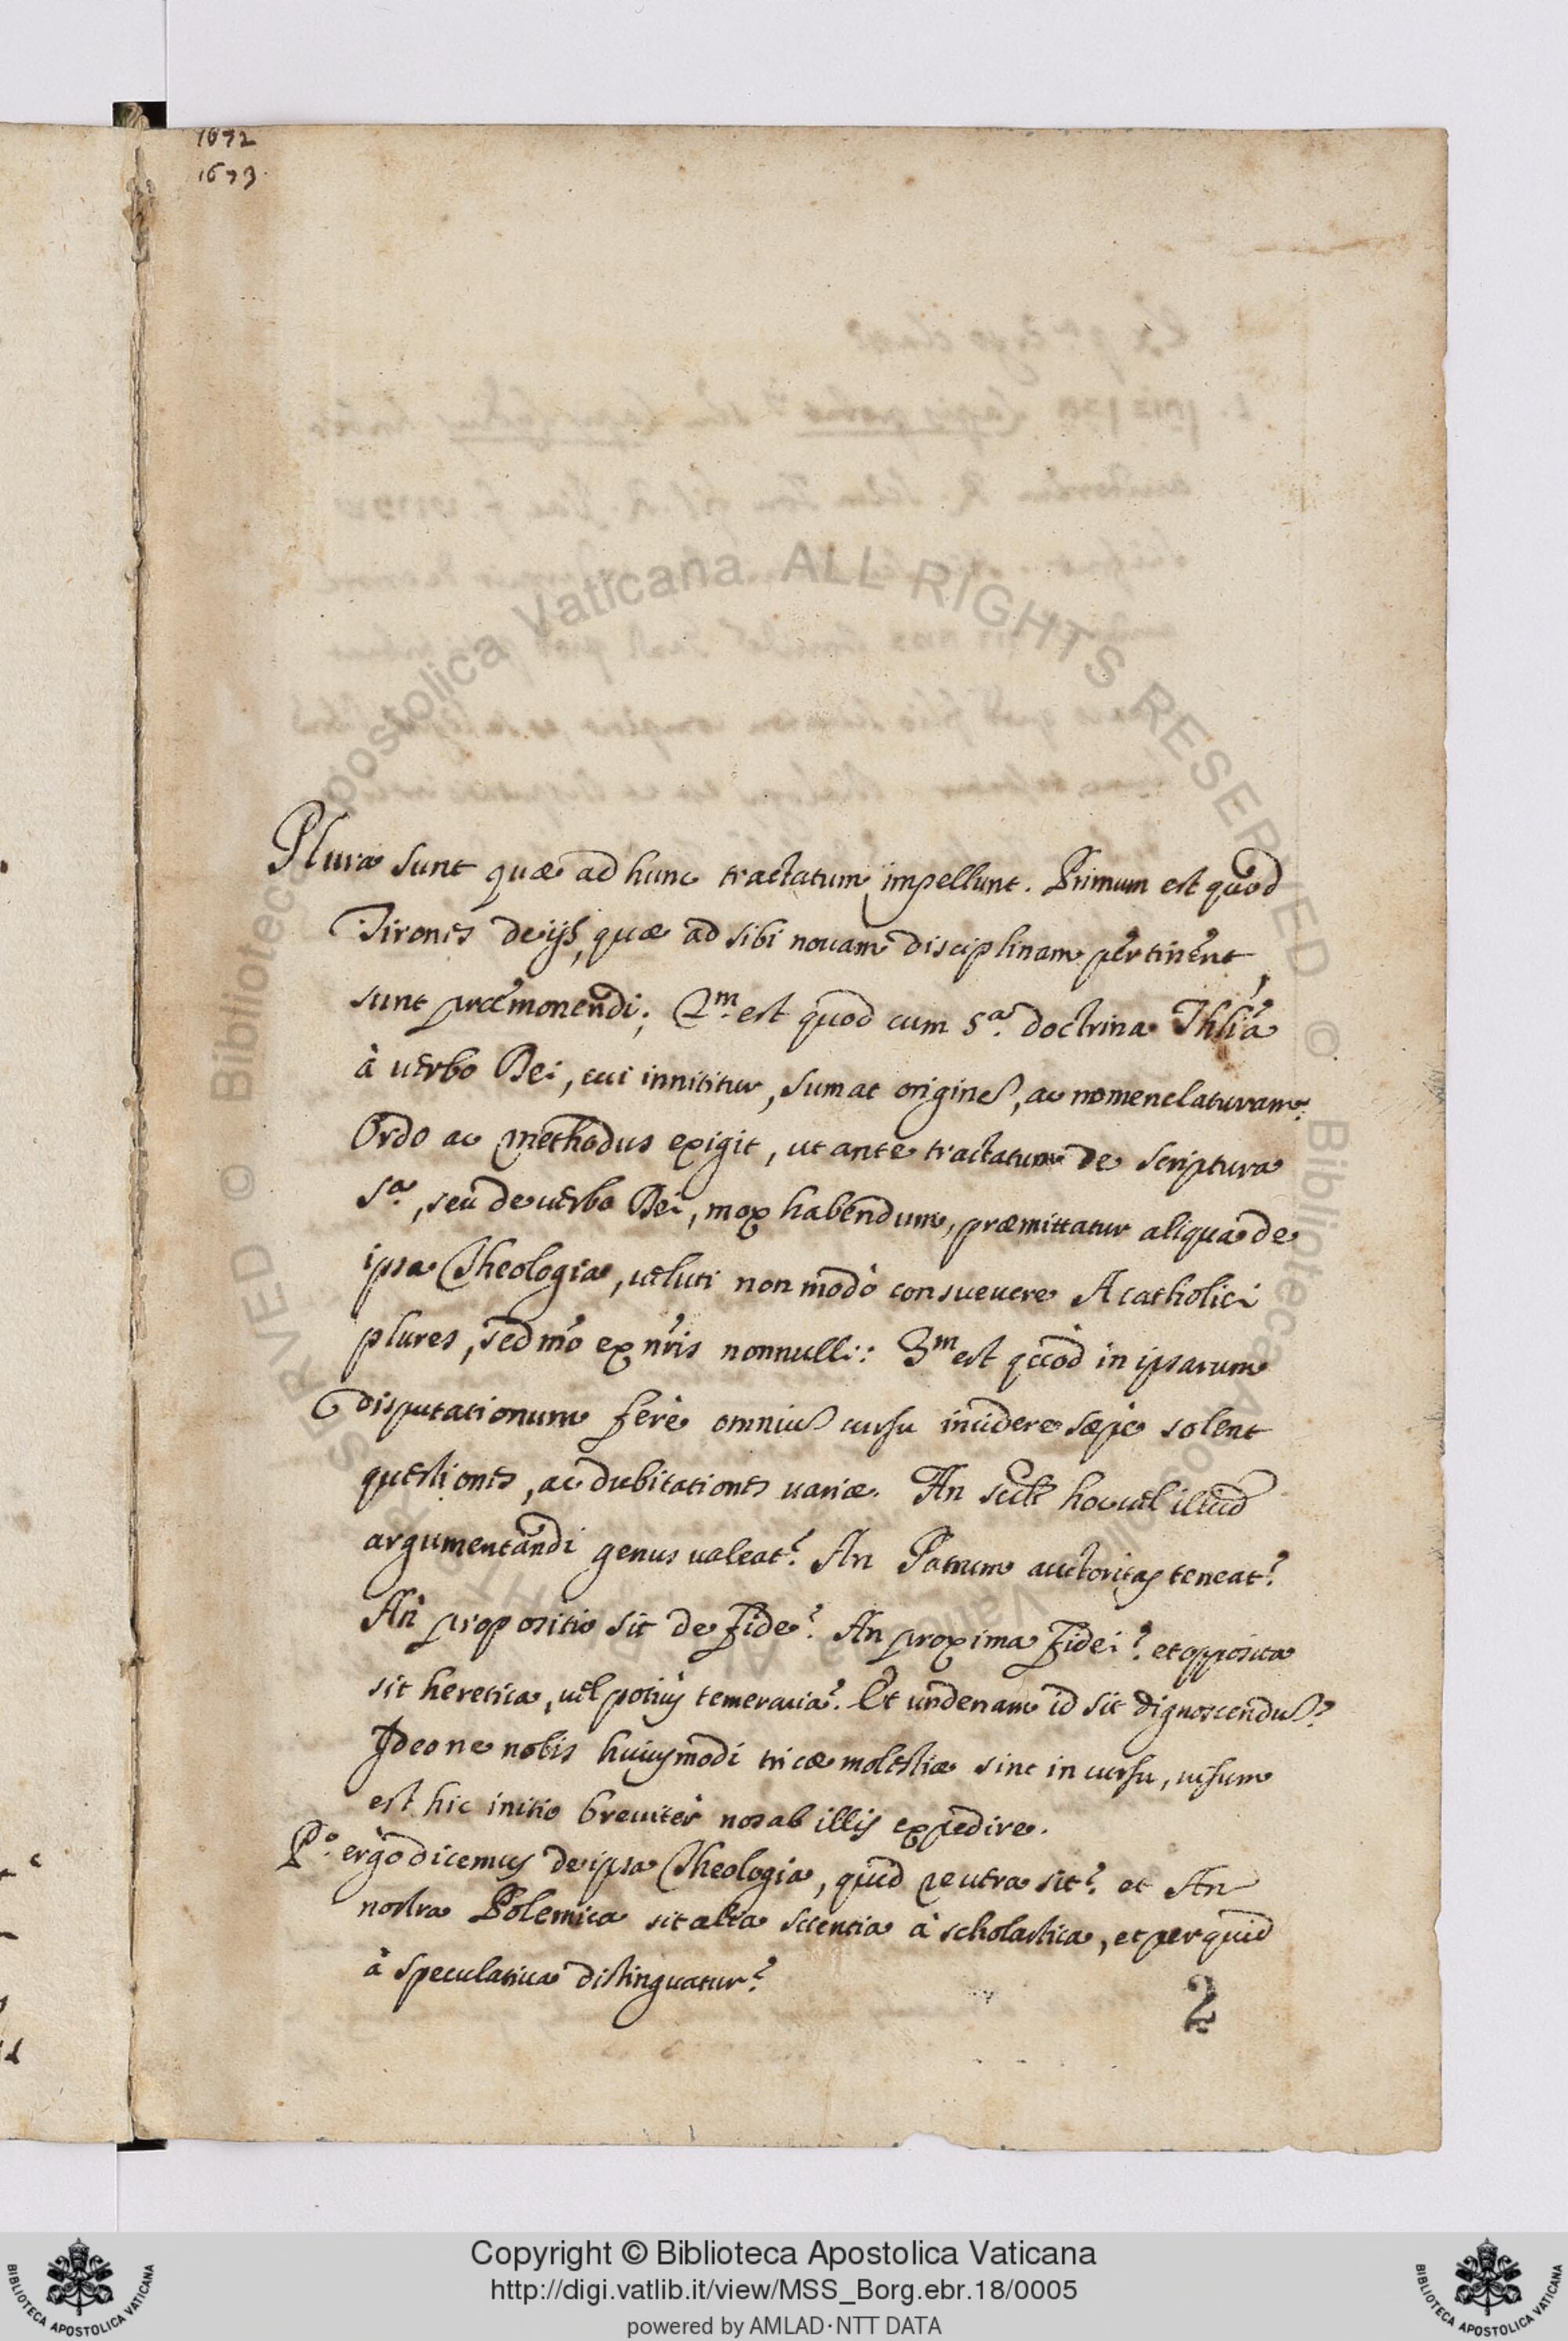 1672
1673.
Plura sunt quæ ad hunc tractatum impellunt. Primum est quod
Tirones de ijs, quæ ad sibi nouam disciplinam pertinent
sunt præmonendi; 2m. est quod cum sa. doctrina Thlia
à uerbo Dei, cui innititur, sumat origine, ac nomenclaturam.
Ordo ac methodus exigit, ut ante tractatum de scriptura
sa., seu de uerbo Dei, mox habendum, præmittatur aliqua de
ipsa Theologia, ueluti non modò consueuere Acatholici
plures, sed mo ex nris nonnulli: 3m est quod in ipsarum
disputationum ferè omniu cursu incidere sæpè solent
questiones, ac dubitationes uariæ. An hoc uel illud
argumentandi genus ualeat? An Patrum auctoritas teneat?
An propositio sit de Fide? An proxima Fidei? et opposita
sit heretica, uel potius temeraria? Et undenam id sit dignoscendu?
Ideo ne nobis huiusmodi tricæ molestiæ sint in cursu, uisum
est hic initio breuiter nos ab illis expedire.
Po. ergò dicemus de ipsa Theologia, quid reuera sit? et An
nostra Polemica sit alia scientia à scholastica, et per quid
à speculatiua distinguatur?
2
© Biblioteca Apostolica Vaticana ALL RIGHTS RESERVED © Biblioteca Apostolica Vaticana ALL RIGHTS RESERVED
Copyright © Biblioteca Apostolica Vaticana
http://digi.vatlib.it/view/MSS_Borg.ebr.18/0005
powered by AMLAD·NTT DATA
BIBLIOTECA APOSTOLICA VATICANA
BIBLIOTECA APOSTOLICA VATICANA